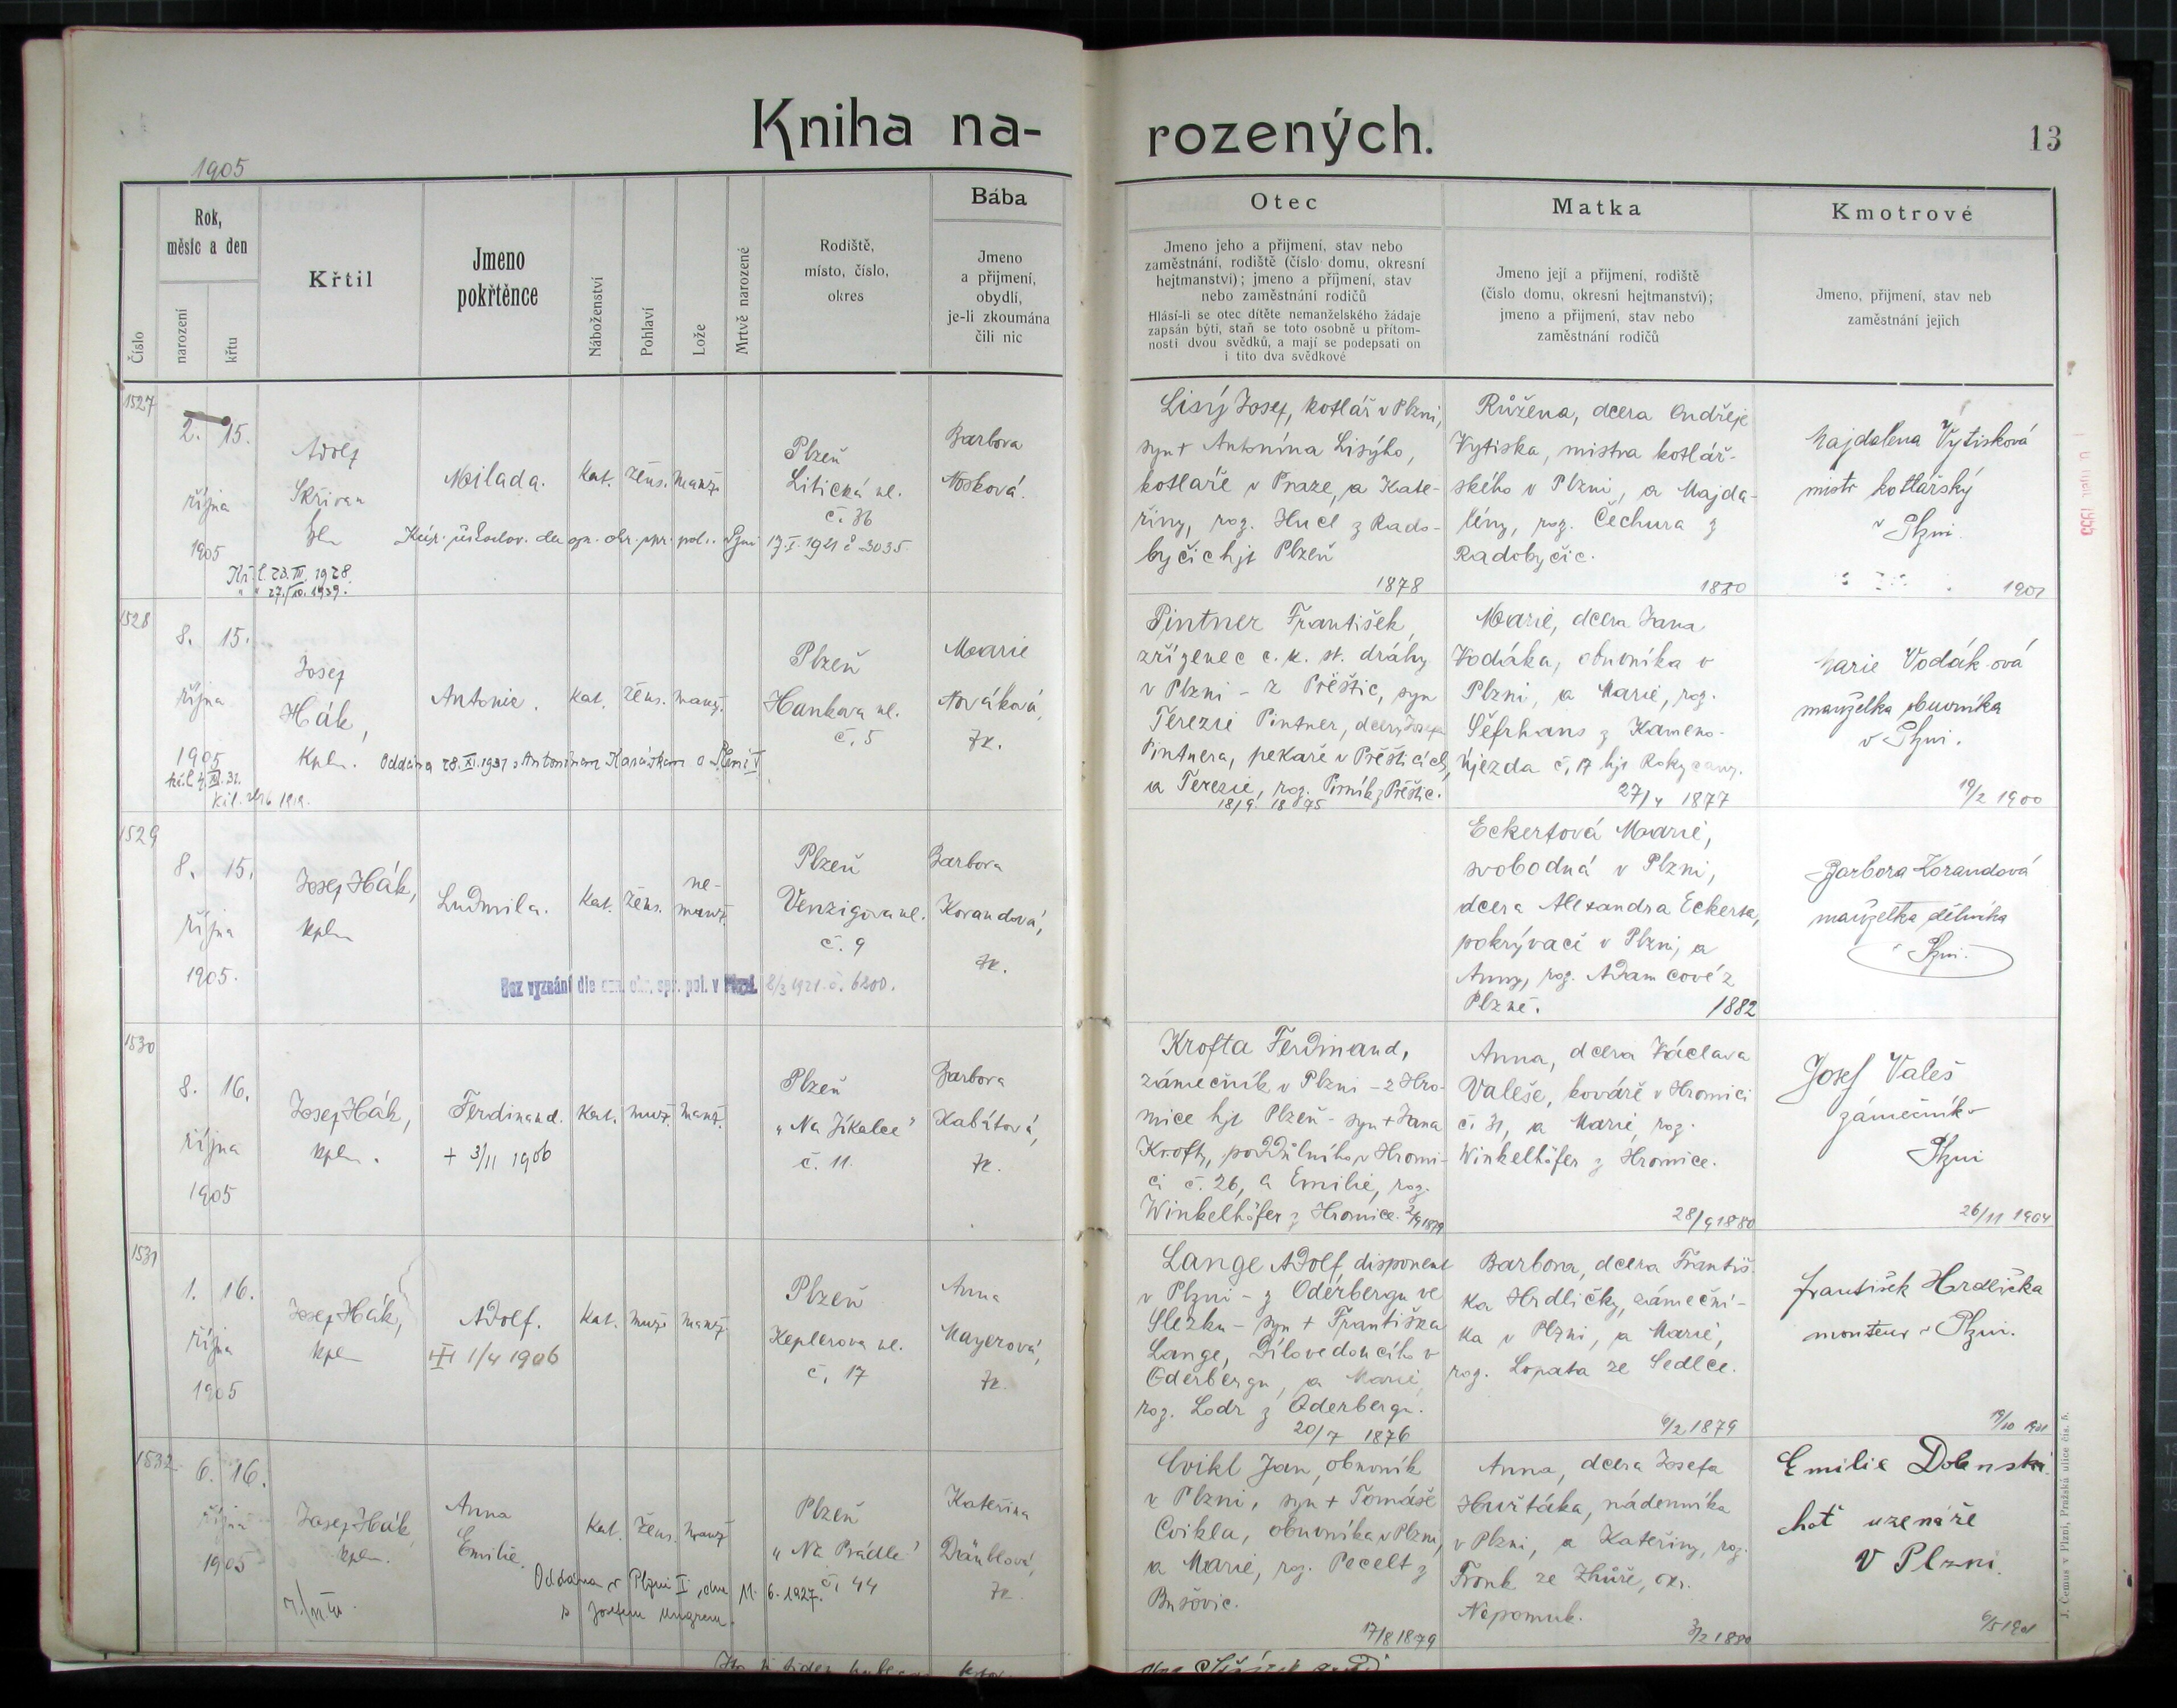 Kniha na-
rozených.
13
1905
Číslo
Rok,
měsíc a den
narození
křtu
Křtil
Jmeno
pokřtěnce
Náboženství
Pohlaví
Lože
Mrtvě narozené
Rodiště,
místo, číslo,
okres
Bába
Jmeno
a příjmení,
obydlí,
je-li zkoumána
čili nic
Otec
Jmeno jeho a přijmení, stav nebo
zaměstnání, rodiště (číslo domu, okresní
hejtmanství); jmeno a příjmení, stav
nebo zaměstnání rodičů
Hlásí-li se otec dítěte nemanželského žádaje
zapsán býti, staň se toto osobně u přítom-
nosti dvou svědků, a mají se podepsati on
i tito dva svědkové
Matka
Jmeno její a přijmení, rodiště
(číslo domu, okresní hejtmanství);
jmeno a přijmení, stav nebo
zaměstnání rodičů
Kmotrové
Jmeno, přijmení, stav neb
zaměstnání jejich
1527
2. 15.
října
1905
Adolf
Skřivan
Milada.
Kat. žens. manž.
Plzeň
Litická ul.
č. 36
Barbora
Nosková.
17.I.1921 č 3035
23.III.1928
27./10.1939.
Lisý Josef, kotlář v Plzni,
syn + Antonína Lisýho,
kotláře v Praze, a Kate-
řiny, roz. Hucl z Rado-
byčic hjt Plzeň
1878
Růžena, dcera Ondřeje
Vytiska, mistra kotlář-
ského v Plzni, a Majda-
lény, roz. Čechura z
Radobyčic.
1880
Majdalena Vytisková
mistr kotlářský
v Plzni.
1528
8. 15.
října
1905
Josef
Hák,
kpln.
Antonie.
Kat. žens. manž.
Oddána 28.XI.1931 s Antonínem Karáskem v Plzni I
Plzeň
Hankova ul.
č. 5
Marie
Nováková,
zk.
Pintner František,
zřízenec c. k. st. dráhy
v Plzni - z Přeštic, syn
Terezie Pintner, dcery Josefa
Pintnera, pekaře v Přešticích,
a Terezie, roz. Pirník z Přeštic.
18/9 1875
Marie, dcera Jana
Vodáka, obuvníka v
Plzni, a Marie, roz.
Šefrhans z Kameno-
Újezda č. 17 hjt Rokycany.
27/4 1877
Marie Vodáková
manželka obuvníka
v Plzni.
19/2 1900
1529
8. 15.
října
1905.
Josef Hák,
kpln
Ludmila.
Kat. žens. ne-
manž.
Bez vyznání dle ozn. okr. spr. pol. v Plzni. 8/3 1921 č. 6200.
Plzeň
Venzigova ul.
č. 9
Barbora
Korandová,
zk.
Eckertová Marie,
svobodná v Plzni,
dcera Alexandra Eckerta,
pokrývače v Plzni, a
Anny, roz. Adamcové z
Plzně.
1882
Barbora Korandová
manželka dělníka
v Plzni.
1530
8. 16.
října
1905
Josef Hák,
kpln.
Ferdinand.
+ 3/11 1906
Kat. muž. manž.
Plzeň
„Na Jíkalce"
č. 11.
Barbora
Kabátová,
zk.
Krofta Ferdinand,
zámečník v Plzni - z Hro-
mice hjt Plzeň - syn + Jana
Krofty, poddůlního v Hromi-
ci č. 26, a Emilie, roz.
Winkelhöfer z Hromice.
Anna, dcera Václava
Valeše, kováře v Hromici
č. 31, a Marie, roz.
Winkelhöfer z Hromice.
28/9 1880
Josef Valeš
zámečník v
Plzni
26/11 1904
1531
1. 16.
října
1905
Josef Hák,
kpln
Adolf.
1/4 1906
Kat. muž. manž.
Plzeň
Keplerova ul.
č. 17
Anna
Mayerová,
zk.
Lange Adolf, disponent
v Plzni - z Oderbergu ve
Slezku - syn + Františka
Lange, dílovedoucího v
Oderbergu, a Marie,
roz. Lodr z Oderbergu.
20/7 1876
Barbora, dcera Františ-
ka Hrdličky, zámeční-
ka v Plzni, a Marie,
roz. Lopata ze Sedlce.
6/2 1879
František Hrdlička
monteur v Plzni.
1532
6. 16.
října
1905
Josef Hák
kpln.
Anna
Emilie.
Kat. žens. manž
Oddána v Plzni I dne 11. 6. 1927.
s Josefem Ungrem.
Plzeň
„Na Prádle"
č. 44
Kateřina
Dräublová,
zk.
Cvikl Jan, obuvník
v Plzni, syn + Tomáše
Cvikla, obuvníka v Plzni,
a Marie, roz. Pecelt z
Bušovic.
17/8 1879
Anna, dcera Josefa
Huřtáka, nádenníka
v Plzni, a Kateřiny, roz.
Fronk ze Zhůře, okr.
Nepomuk.
3/2 1880
Emilie Dolenská
choť uzenáře
v Plzni.
J. Čemus v Plzni, Pražská ulice čís. 5.